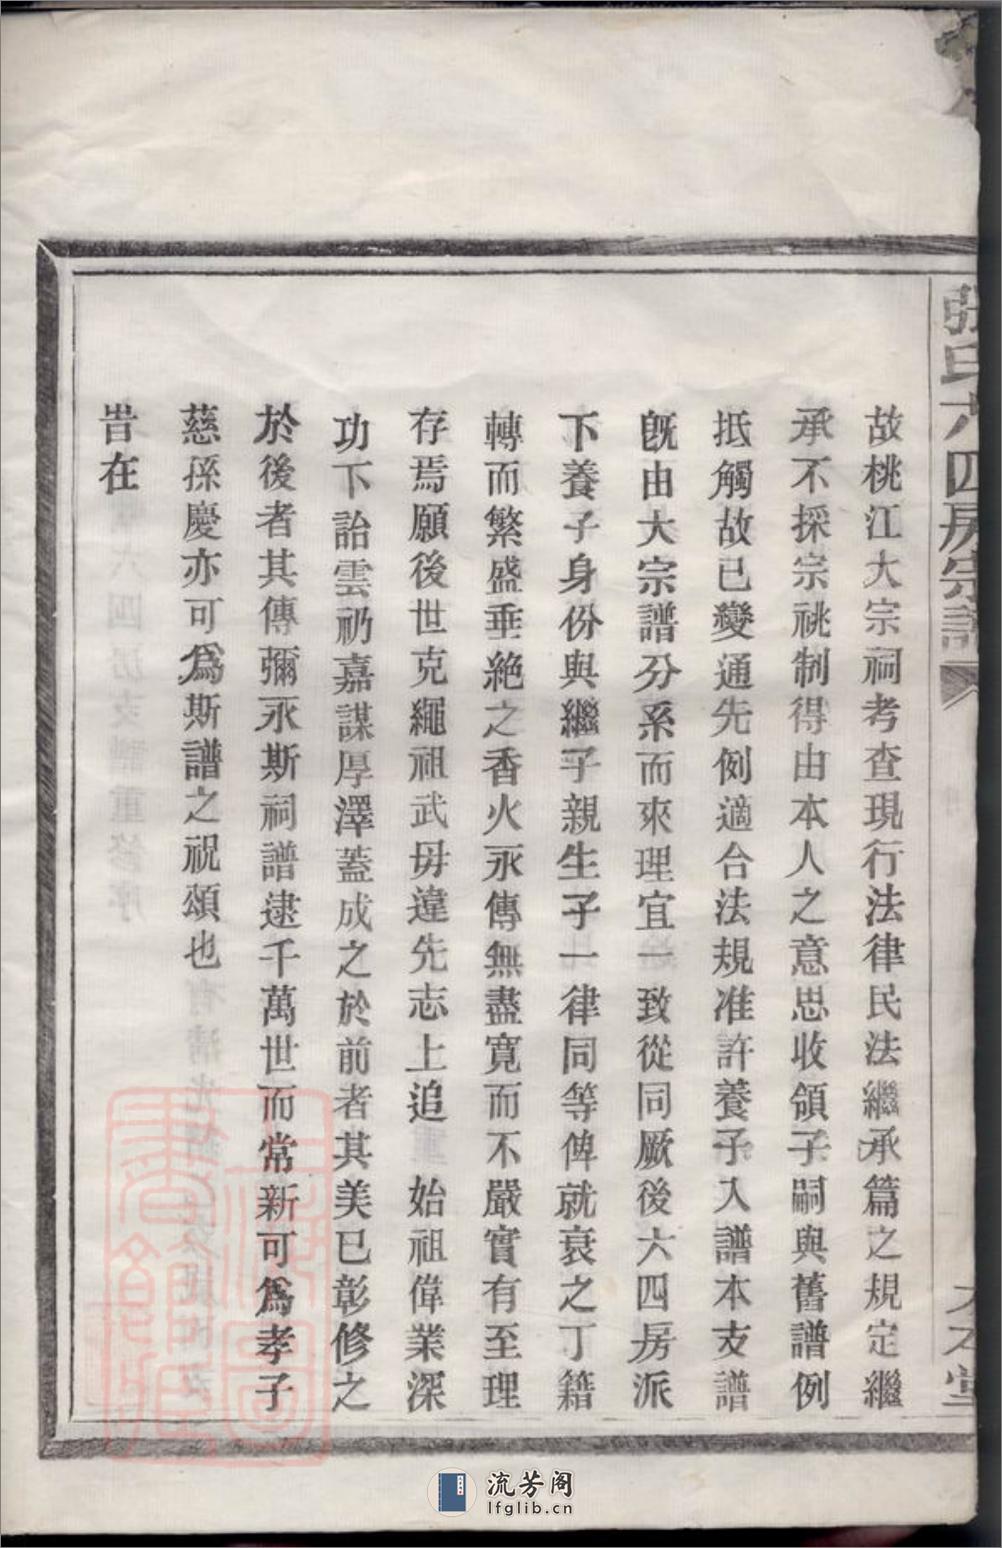 張氏六四房宗譜
故桃江大宗祠考查現行法律民法繼承篇之規定繼
承不採宗祧制得由本人之意思收領子嗣與舊譜例
抵觸故已變通先例適合法規准許養子入譜本支譜
旣由大宗譜分系而來理宜一致從同厥後六四房派
下養子身份與繼子親生子一律同等俾就衰之丁籍
轉而繁盛垂絕之香火永傳無盡寬而不嚴實有至理
存焉願後世克繩祖武毋違先志上追 始祖偉業深
功下詒雲礽嘉謀厚澤蓋成之於前者其美已彰修之
於後者其傳彌永斯祠譜逮千萬世而常新可爲孝子
慈孫慶亦可爲斯譜之祝頌也
旹在
上海圖書館藏
流芳阁
lfglib.cn